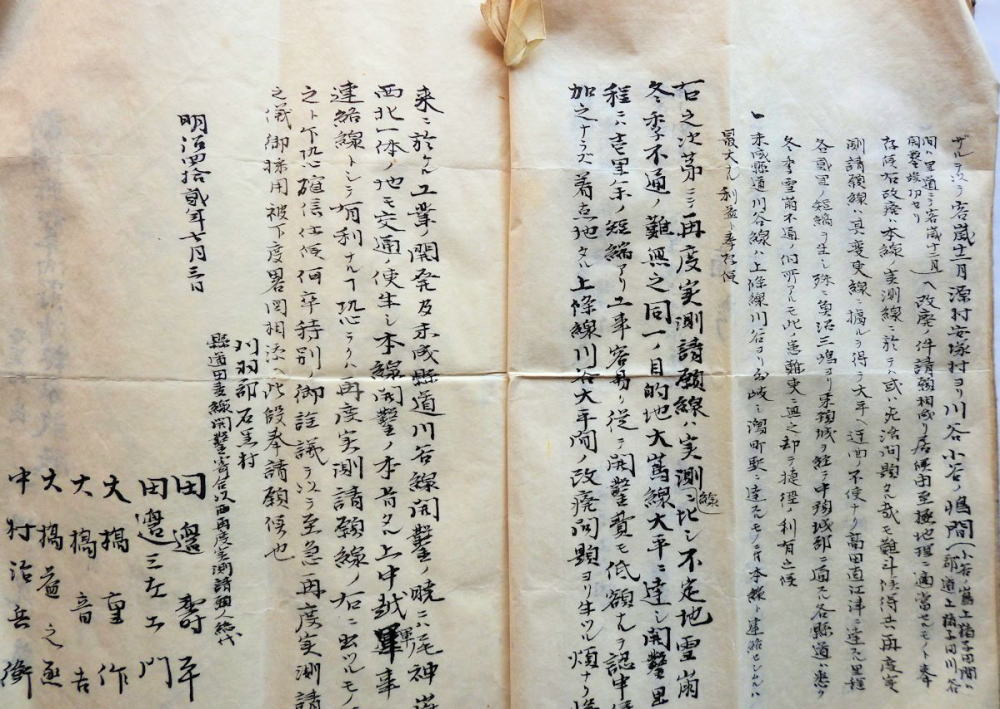 ザル所ヲ客歳十二月源村安塚村ヨリ川谷小谷ノ嶋間
小谷ノ嶌上橋子田間ハ
郡道上橋子田川谷
間ハ里道ニシテ客歳十二月
開鑿竣切セリ
ヘ改廃ノ件請願相成リ居候由至極地理ニ適当セモノト奉
存候右改廃ハ本線ノ実測線ニ於テ
測請願線ハ其変更線ニ拠ルヲ得テ大平ヘ迂回ノ不便ナク高田直江津ニ達スル里程
各貳里ノ短縮ヲ生シ殊ニ魚沼三嶋ヨリ東頸城ヲ経テ中頸城郡ニ通スル各県道ハ悉ク
冬季雪崩不通ノ個所アルモ此ノ患難更ニ無之却テ捷径ノ利有之候
一未成県道川谷線ハ上條線川谷ヨリ分岐シ潟町駅ニ達スルモノニシテ本線ト連絡セシムルハ
最大ナル利益ト奉存候
右之次第ニシテ再度実測請願線ハ実測線ニ比シ不定地雪崩
冬季不通ノ難無之同一ノ目的地大嶌線大平ニ達シ開鑿里
程ニハ壱里余ノ短縮アリ工事容易ク従テ開鑿費モ低額ナルヲ認申候
加之ナラズ着点地タル上條線川谷大平間ノ改廃問題ヨリ生ツル煩ナク
来ニ於ケル工業ノ開発及未成県道川谷線開鑿ノ暁ニハ尾神岳
西北一体ノ地モ交通ノ便生シ本線開鑿ノ本旨タル上中越軍事
連絡線トシテ有利ナルコト恐ラクハ再度実測請願線ノ右ニ出ツルモノ
之ト乍恐確信仕候何卒特別御詮議ヲ以テ至急再度実測請
之儀御採用被下度略図相添ヘ此段奉請願候也
明治四拾貳年七月三日
刈羽郡石黒村
県道田麦線開鑿寄合以西再度実測請願人総代
田邉寿平
田邉三左エ門
大橋重作
大橋音吉
大橋益之丞
中村治兵衛